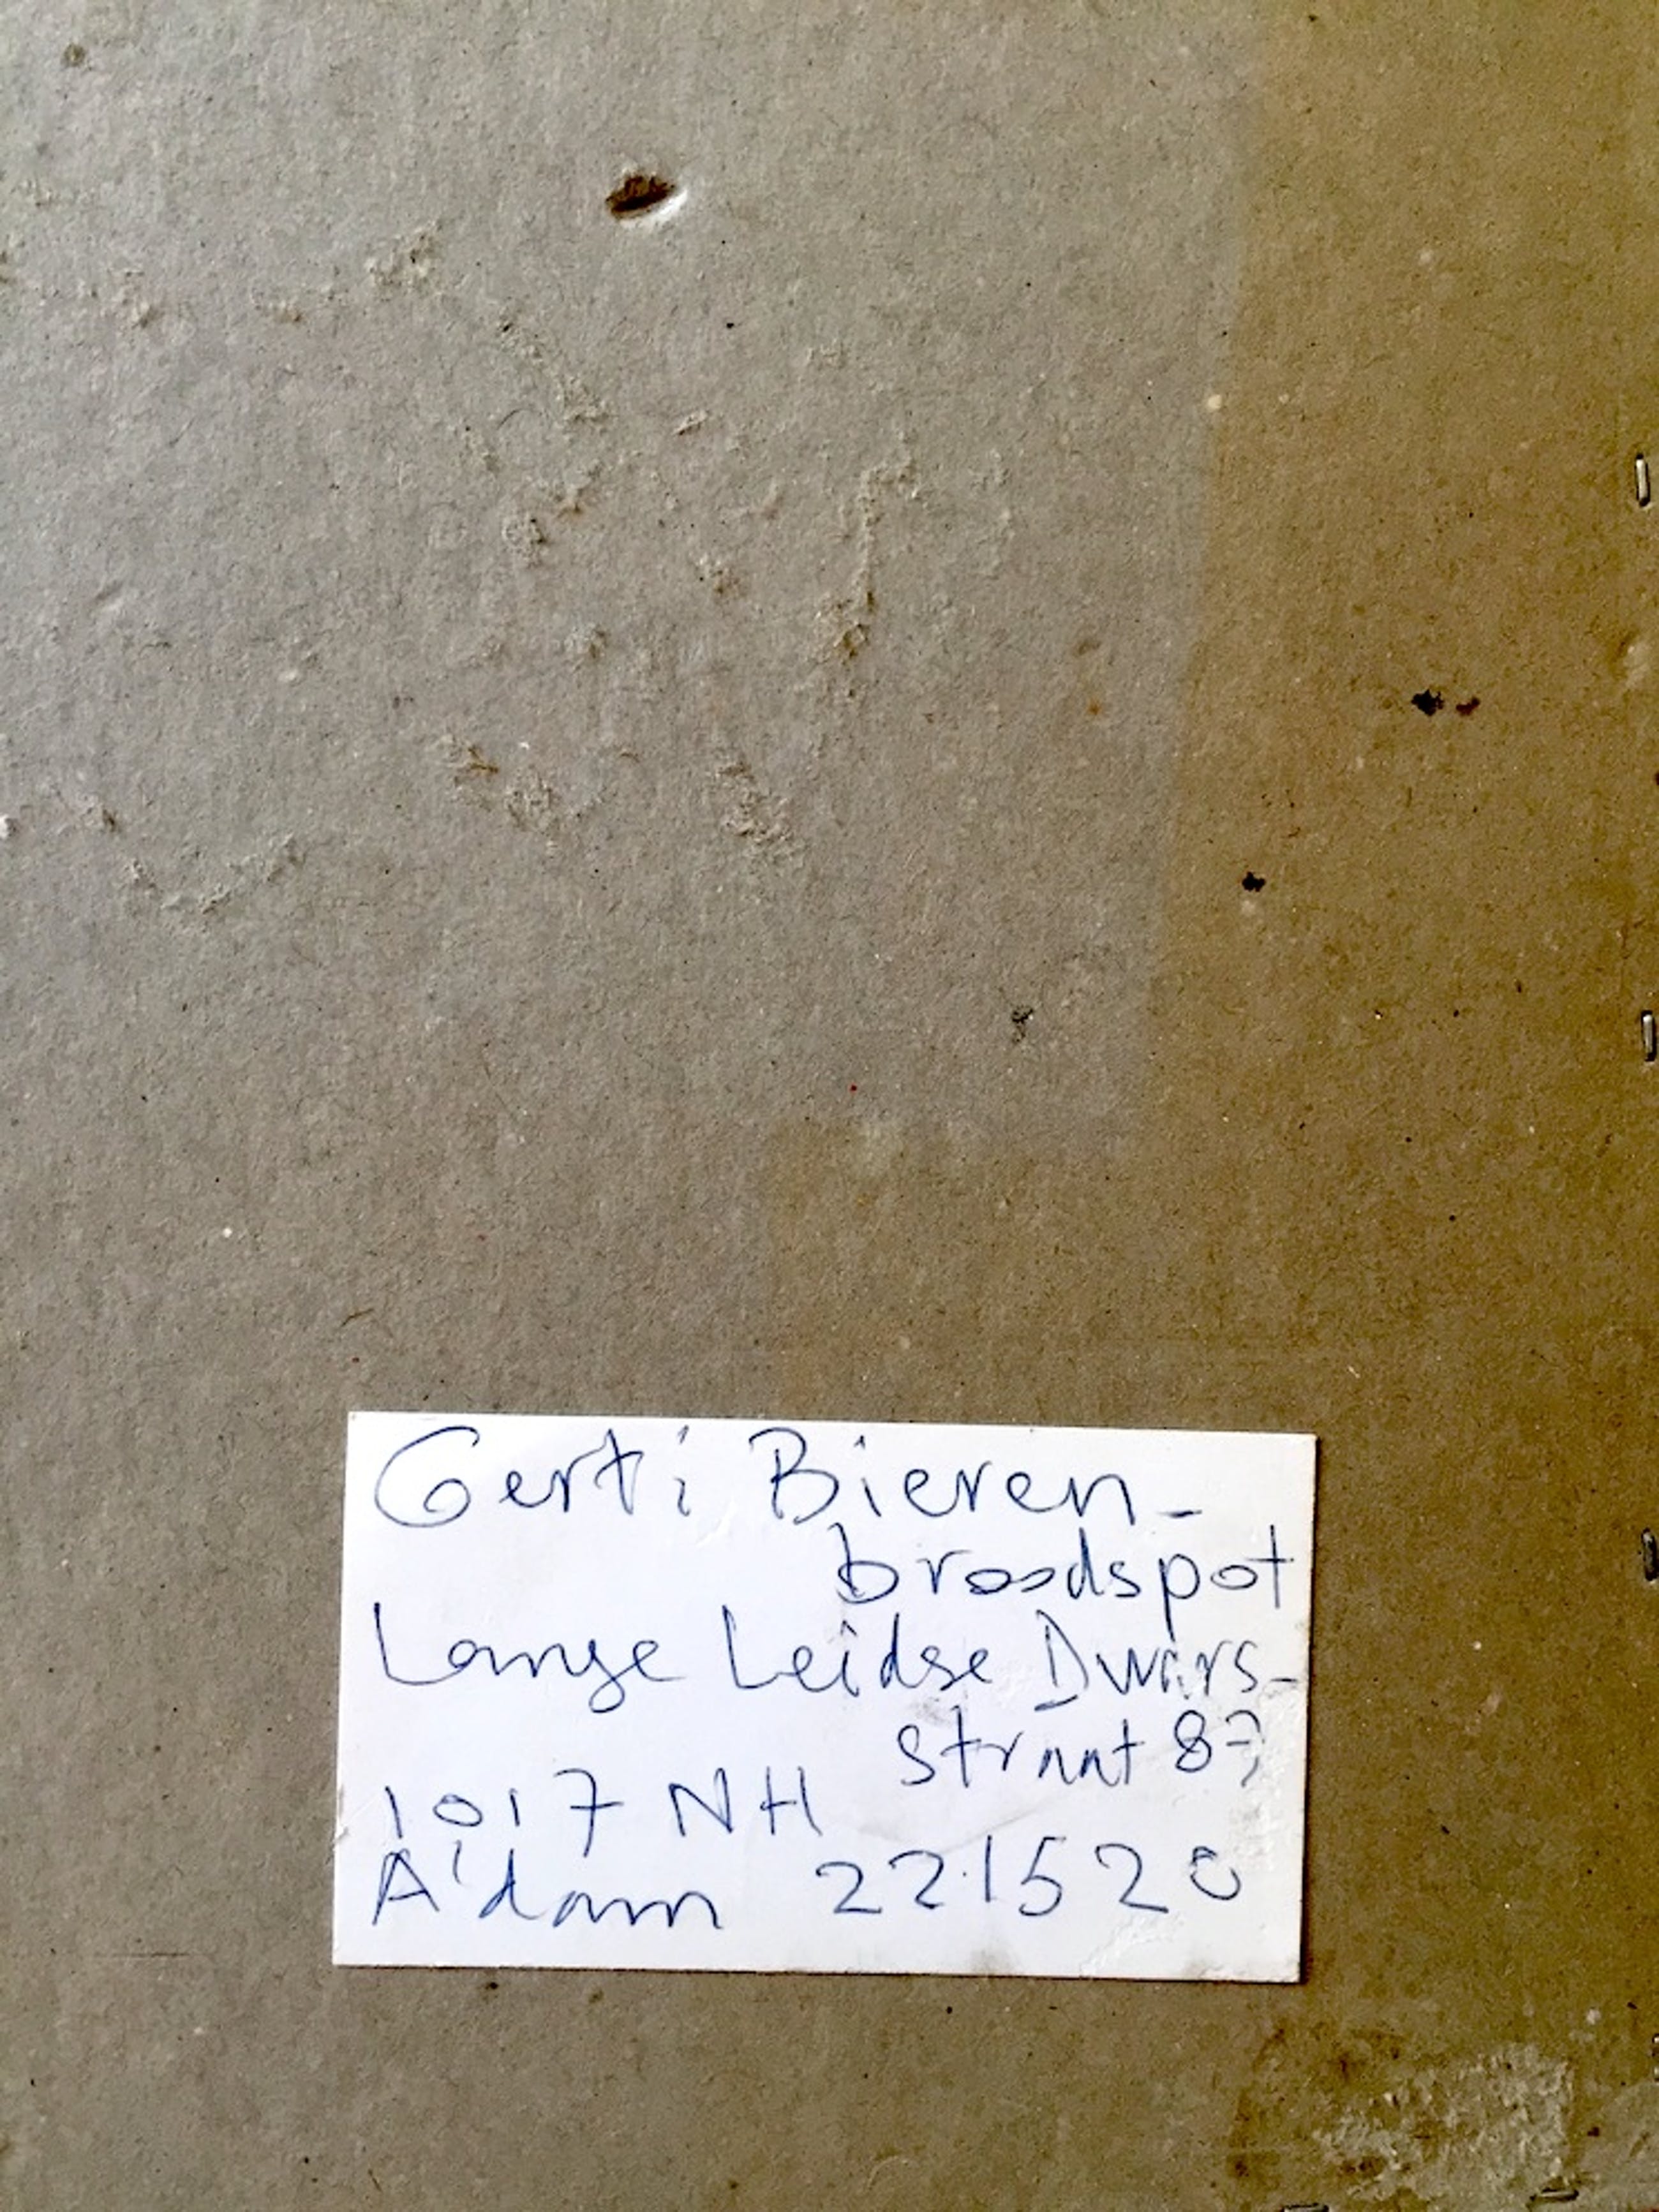 Gerti Bieren-
broodspot
Lange Leidse Dwars-
straat 87
1017 NH
A'dam 221520